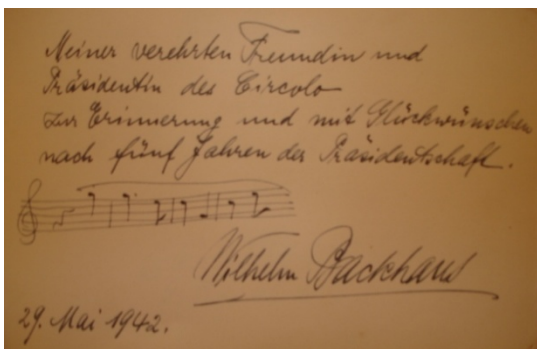 Meiner verehrten Freundin und
Präsidentin des Circolo
zur Erinnerung und mit Glückwünschen
nach fünf Jahren der Präsidentschaft.
Wilhelm Backhaus
29. Mai 1942.